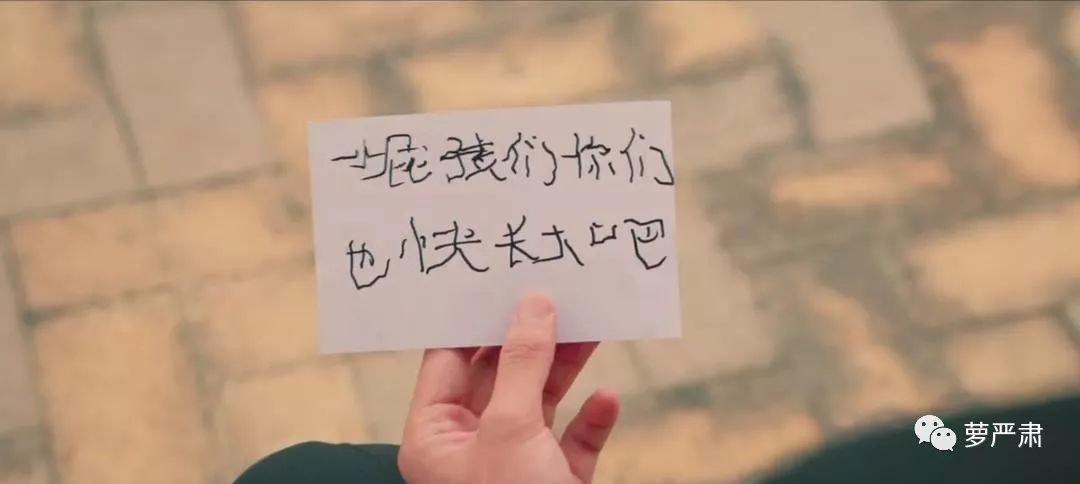 小屁孩们你们
也快长大吧
萝严肃